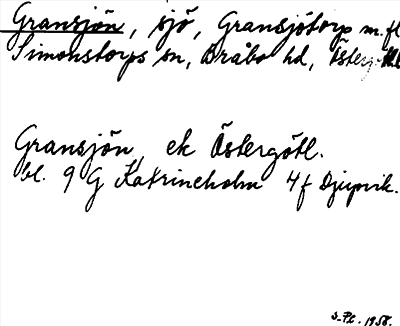 Gransjön, sjö, Gransjötorp m.fl
Simonstorps sn, Bråbo hd, Österg.
Gransjön, ek Östergötl.
bl. 9 G Katrineholm 4f Djupvik.
1958.